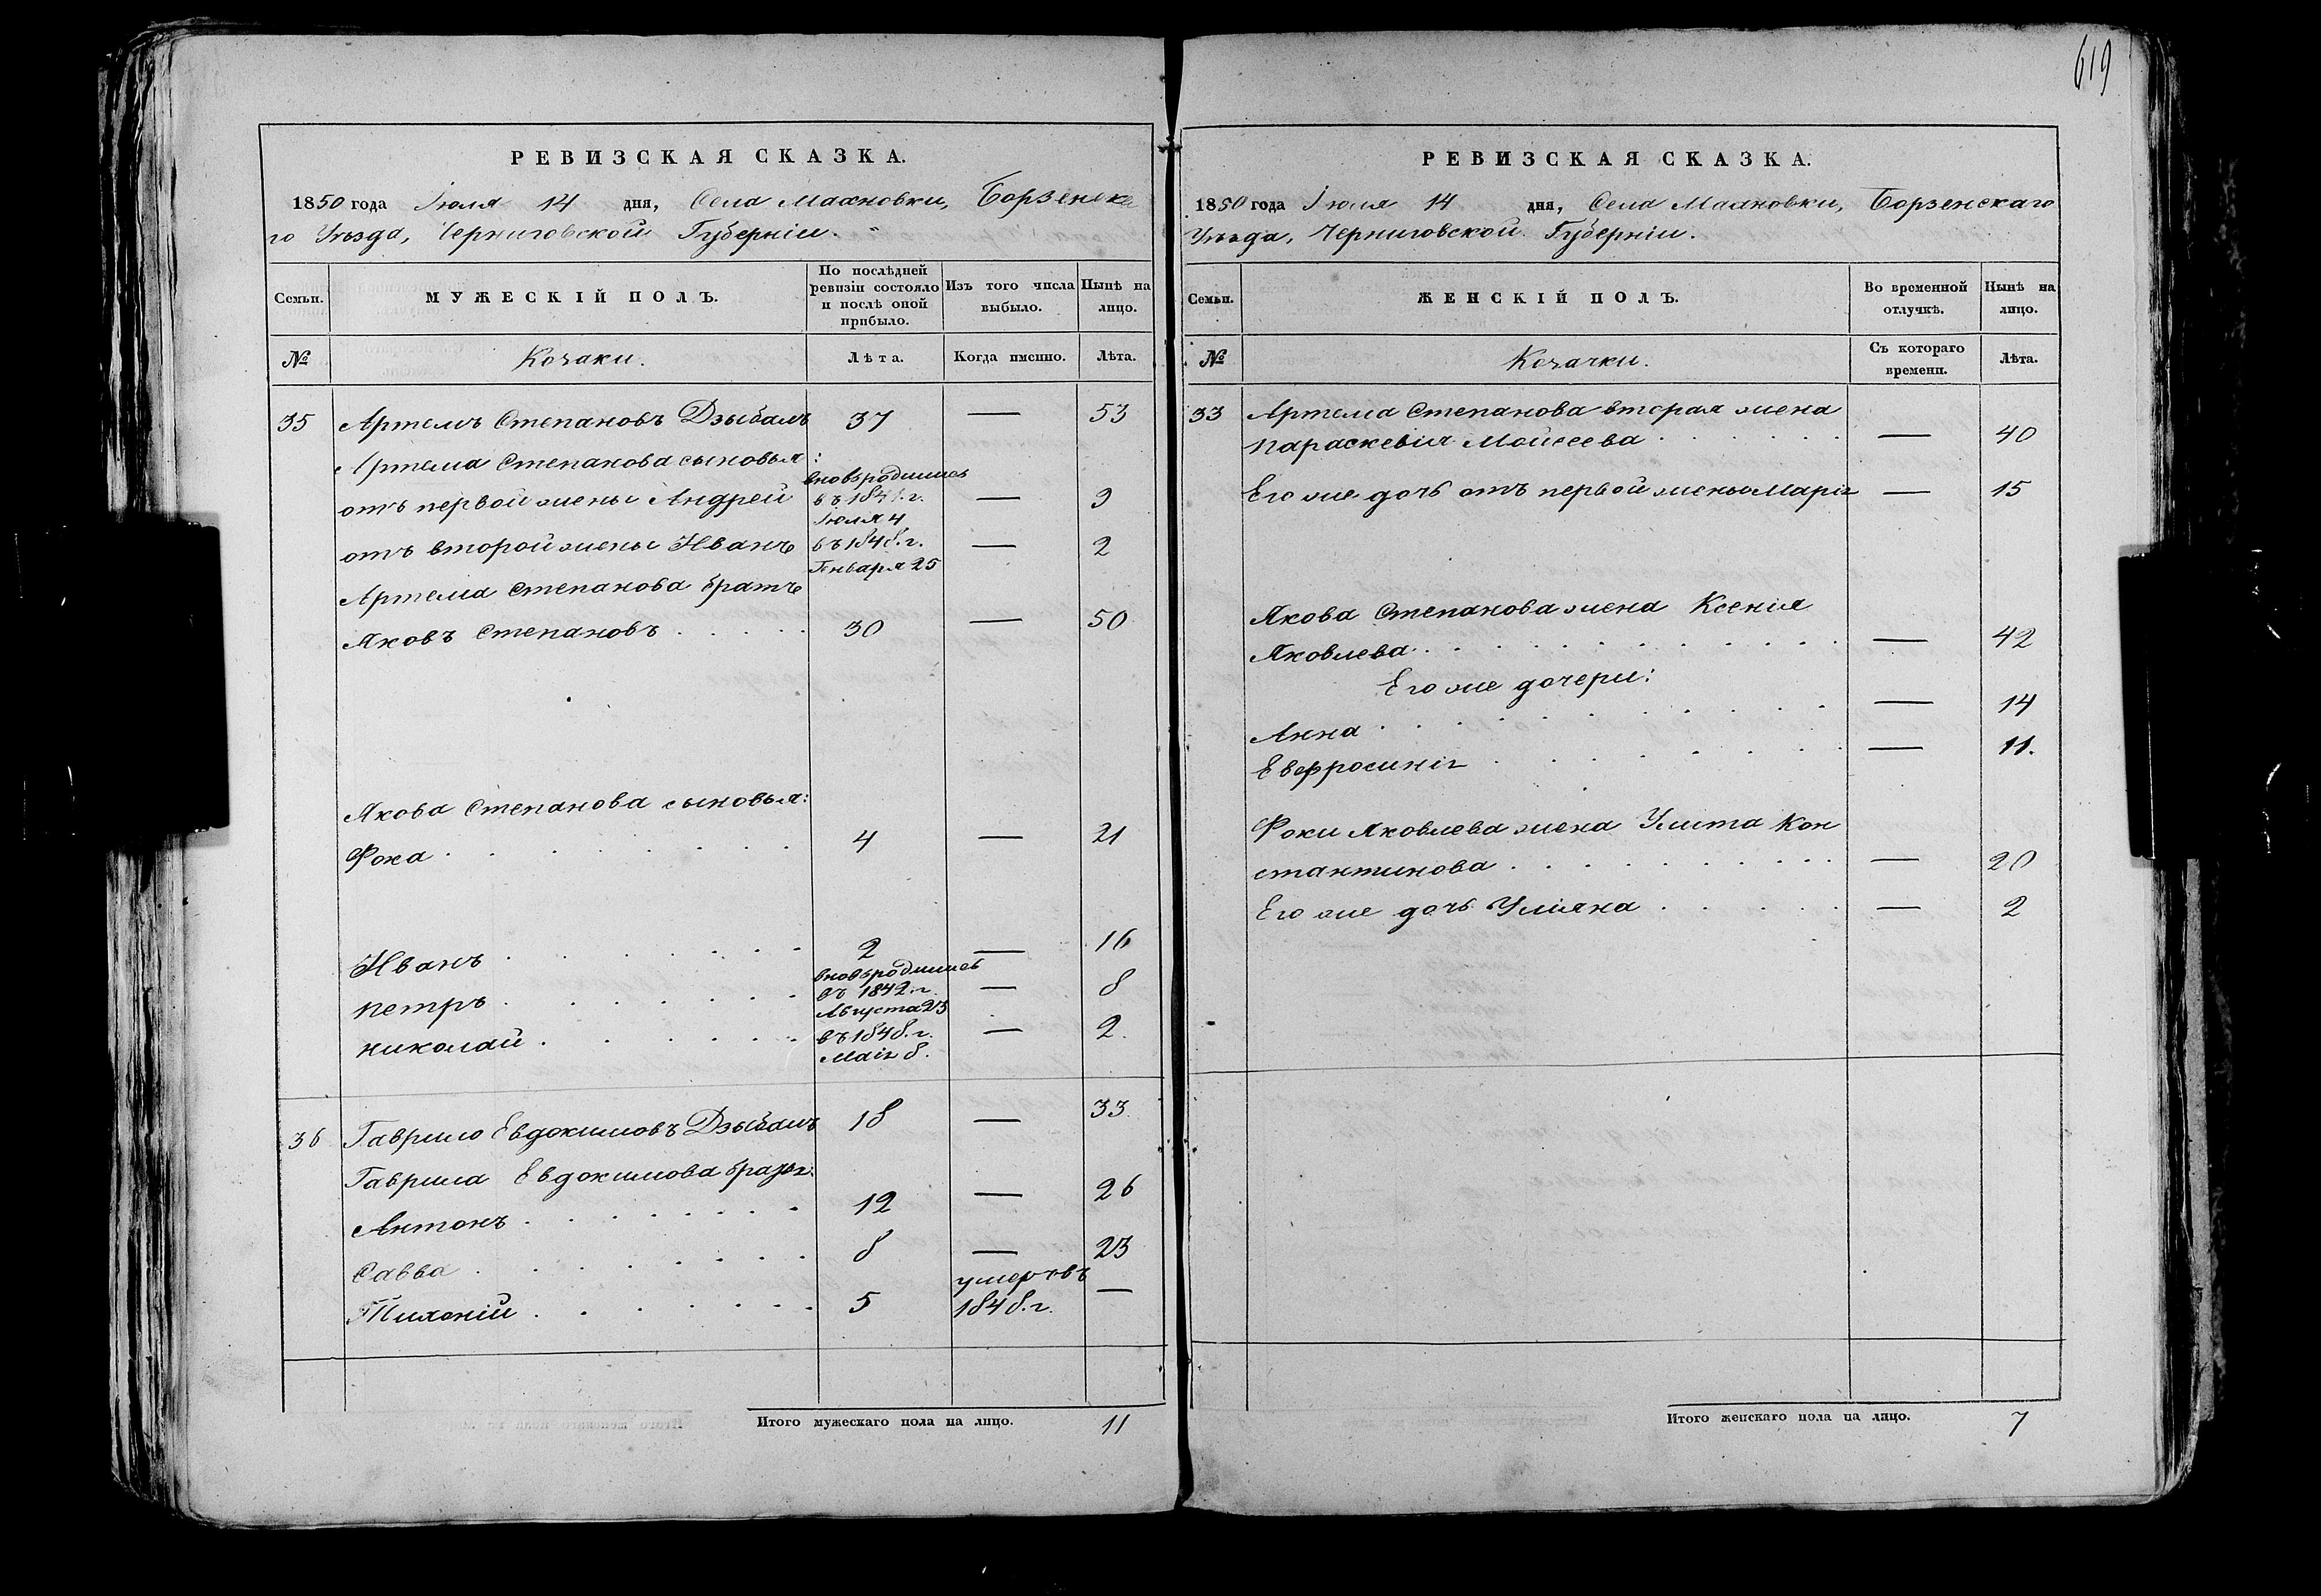 619
РЕВИЗСКАЯ СКАЗКА.
1850 года Іюля 14 дня, Села Маановки, Борзенска
го Уѣзда, Черниговской Губерніи.
Семьи.
МУЖЕСКІЙ ПОЛЪ.
По послѣдней ревизіи состояло и послѣ оной прибыло.
Изъ того числа выбыло.
Нынѣ на лицо.
№
Козаки.
Лѣта.
Когда именно.
Лѣта.
35 Артемъ Степановъ Дзыбалъ 37 — 53
Артема Степанова сыновья:
вновьродились
отъ первой жены Андрей въ 1841.г. — 9
Іюля 4
отъ второй жены Иванъ въ 1848.г. — 2
Генваря 25
Артема Степанова братъ
Яковъ Степановъ 30 — 50
Якова Степанова сыновья:
Фока 4 — 21
Иванъ 2 — 16
вновьродились
Петръ въ 1842.г. — 8
Августа 23
Николай въ 1848.г. — 2.
Маія 8.
36 Гаврило Евдокимовъ Дзыбалъ 18 — 33
Гаврила Евдокимова братья:
Антонъ 12 — 26
Савва 8 — 23
умеръ въ
Тихоній 5 1848.г. —
Итого мужескаго пола на лицо. 11
РЕВИЗСКАЯ СКАЗКА.
1850 года Іюля 14 дня, Села Маановки, Борзенскаго
Уѣзда, Черниговской Губерніи.
Семьи.
ЖЕНСКІЙ ПОЛЪ.
Во временной отлучкѣ.
Нынѣ на лицо.
№
Козачки.
Съ котораго времени.
Лѣта.
33 Артема Степанова вторая жена
Параскевія Мойсеева — 40
Его же дочь отъ первой жены Марія — 15
Якова Степанова жена Ксенія
Яковлева — 42
Его же дочери:
Анна — 14
Евфросинія — 11.
Фоки Яковлева жена Улита Кон
стантинова — 20
Его же дочь Уліяна — 2
Итого женскаго пола на лицо. 7